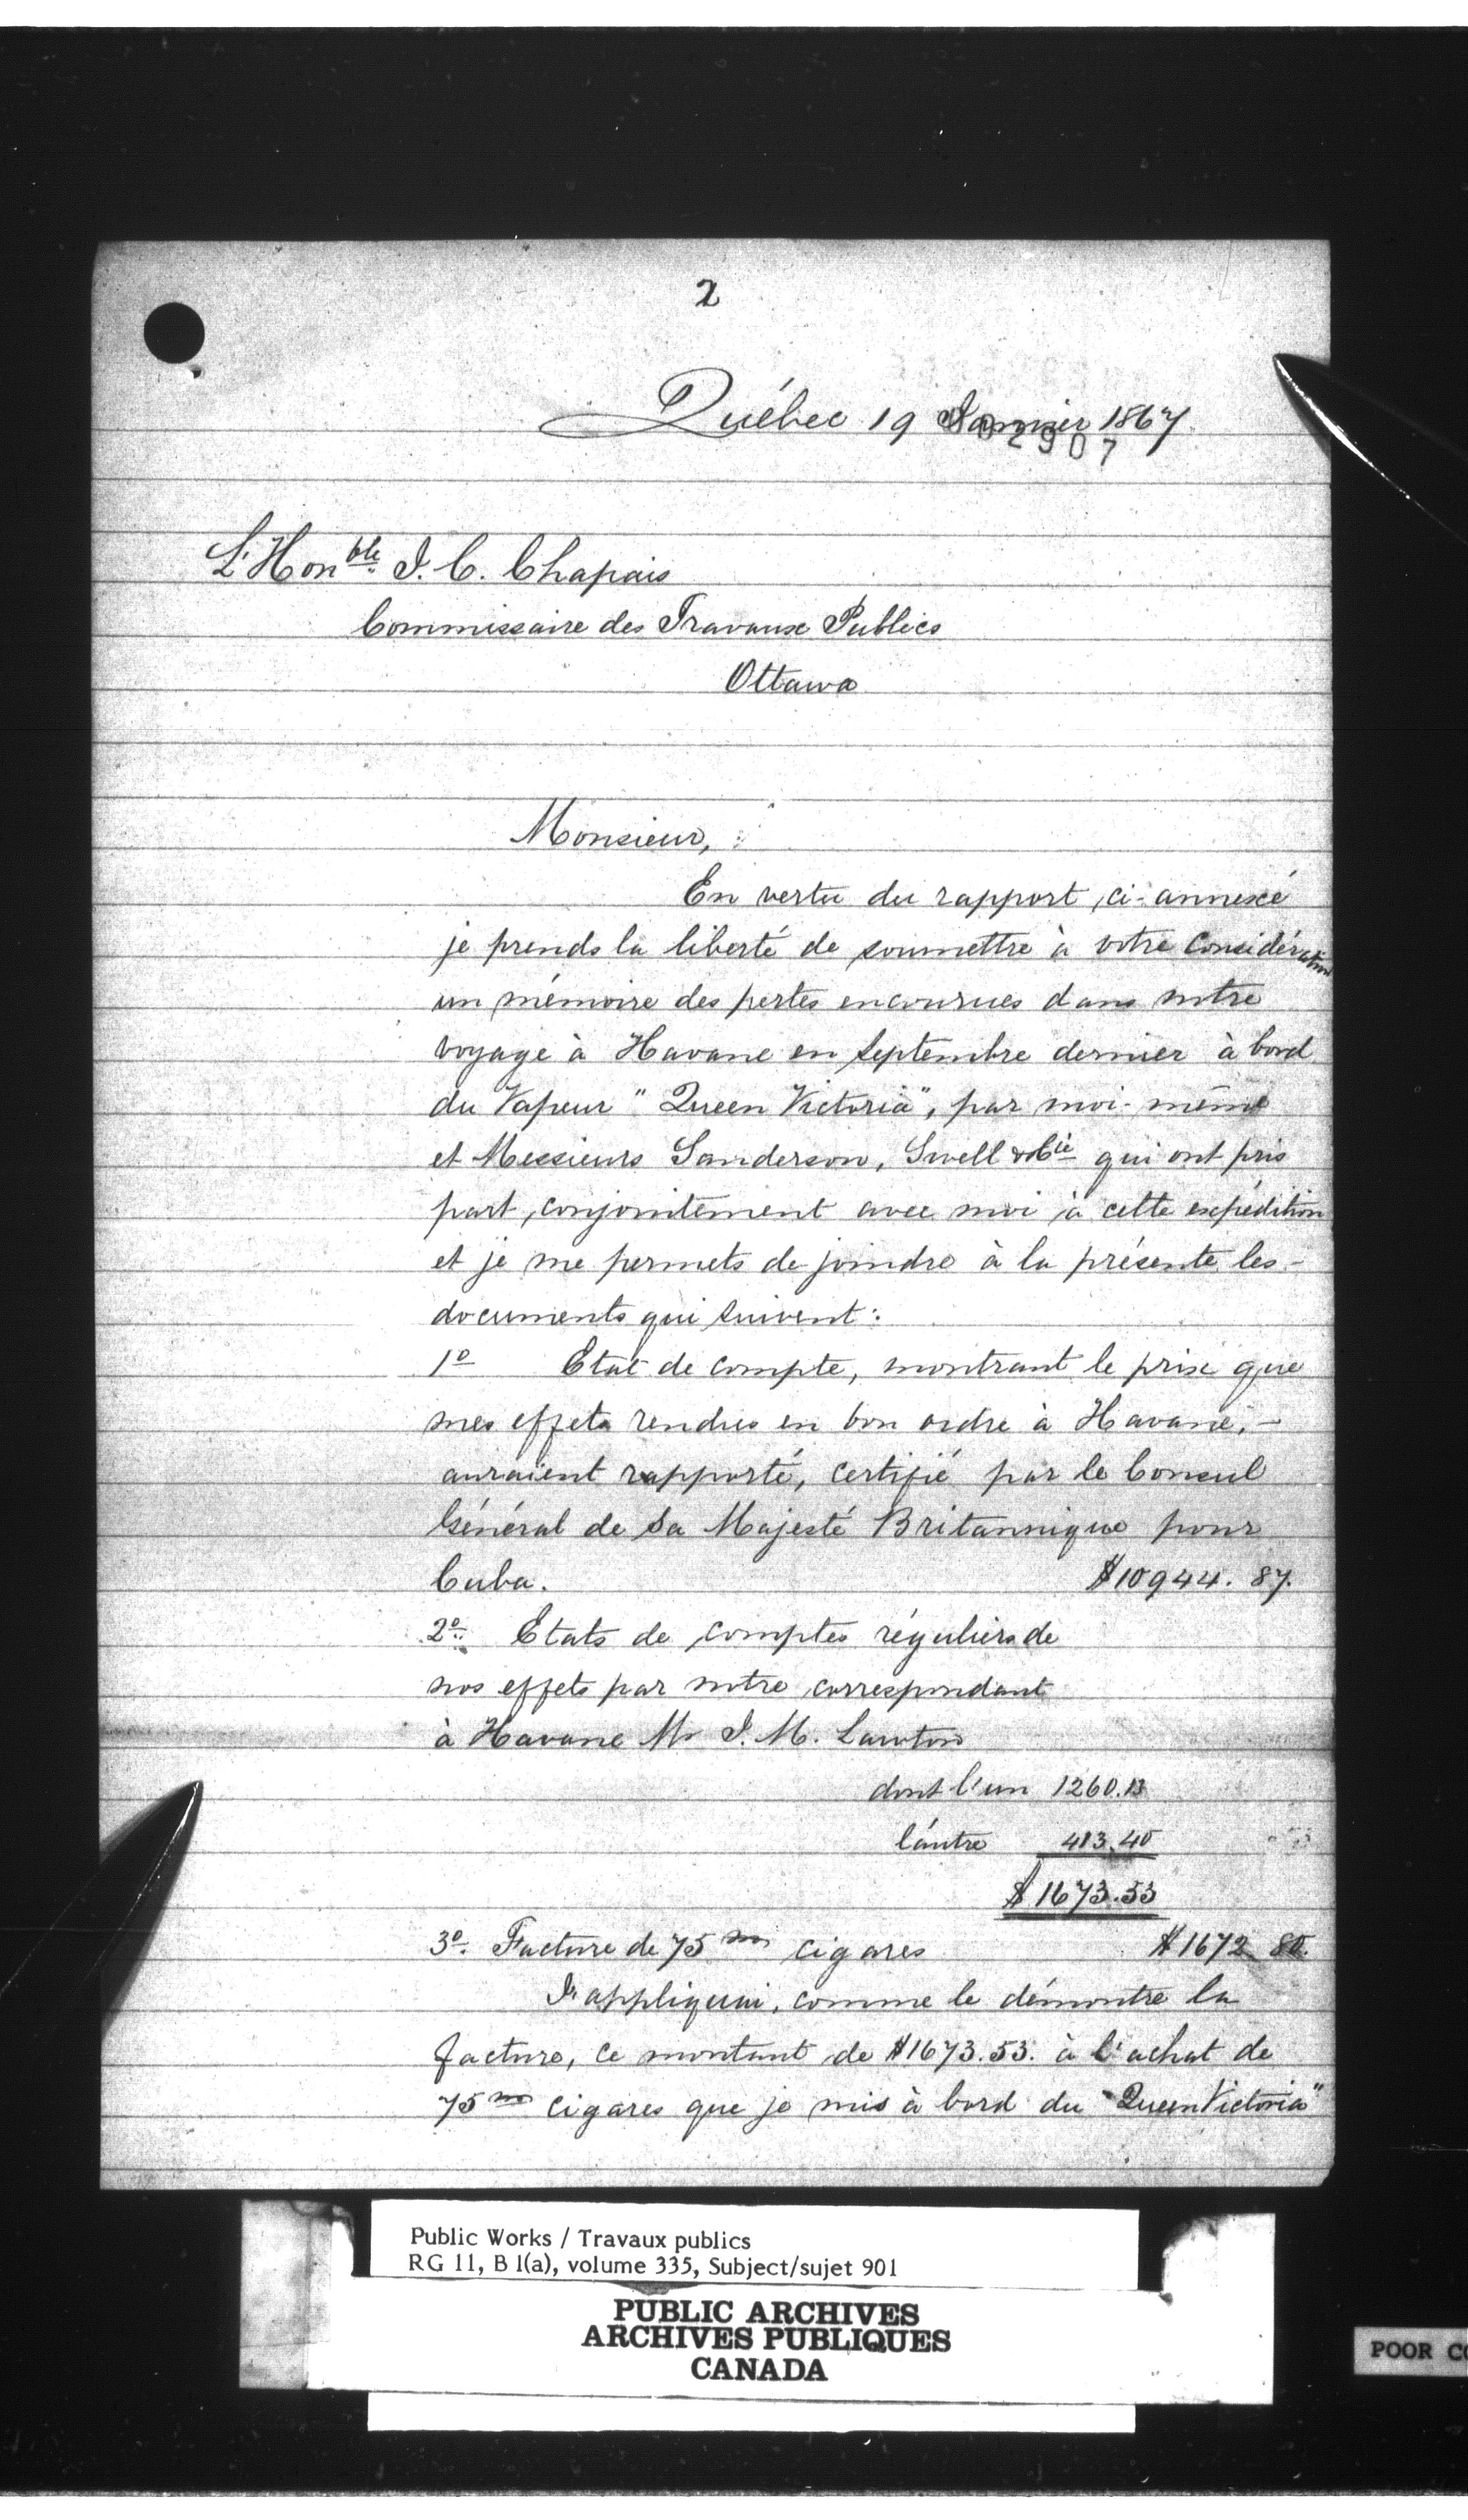 2
Québec 19 Janvier 1867
02907
L'Honble. J. C. Chapais
Commissaire des Travaux Publics
Ottawa
Monsieur,
En vertu du rapport ci-annexé
je prends la liberté de soumettre à votre Considération
un mémoire des pertes encourues dans notre
voyage à Havane en Septembre dernier à bord
du Vapeur "Queen Victoria", par moi-même
et Messieurs Sanderson, & Cie qui ont pris
part, conjointement avec moi à cette expédition
et je me permets de joindre à la présente les-
documents qui suivent:
1o Etat de compte, montrant le prix que
mes effets rendus en bon ordre à Havane,-
auraient rapporté, certifié par le Consul
Général de Sa Majesté Britannique pour
Cuba. $10944. 87.
2o. Etats de comptes réguliers de
nos effets par notre correspondant
à Havane Mr J. M. Lawton
dont l'un 1260.13
l'autre 413.40
$1673.53
3o. Facture de 75 m cigares $1672 80.
J'appliquai, comme le démontre la
facture, ce montant de $1673.53. à l'achat de
75 m cigares que je mis à bord du "Queen Victoria"
Public Works / Travaux publics
RG 11, B 1(a), volume 335, Subject/sujet 901
PUBLIC ARCHIVES
ARCHIVES PUBLIQUES
CANADA
POOR CO